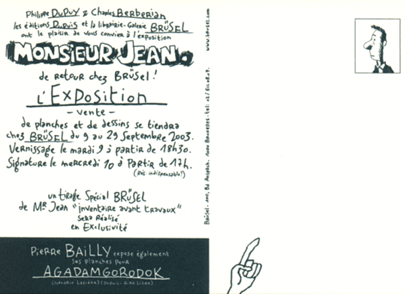 Philippe DUPUY & Charles BERBERIAN
les éditions DUPUIS et la librairie-Galerie BRÜSEL
ont le plaisir de vous convier à l'exposition
MONSIEUR JEAN
de retour chez BRÜSEL!
L'EXPOSITION
- vente -
de planches et de dessins se tiendra
chez BRÜSEL du 9 au 29 Septembre 2003.
Vernissage le mardi 9 à partir de 18h30.
Signature le mercredi 10 à Partir de 17h.
un tirage Spécial BRÜSEL
de Mr Jean "inventaire avant travaux"
sera Réalisé
en Exclusivité
PIERRE BAILLY expose également
ses planches pour
AGADAMGORODOK
www.brusel.com
Brüsel - 100, Bd Anspach, 1000 Bruxelles